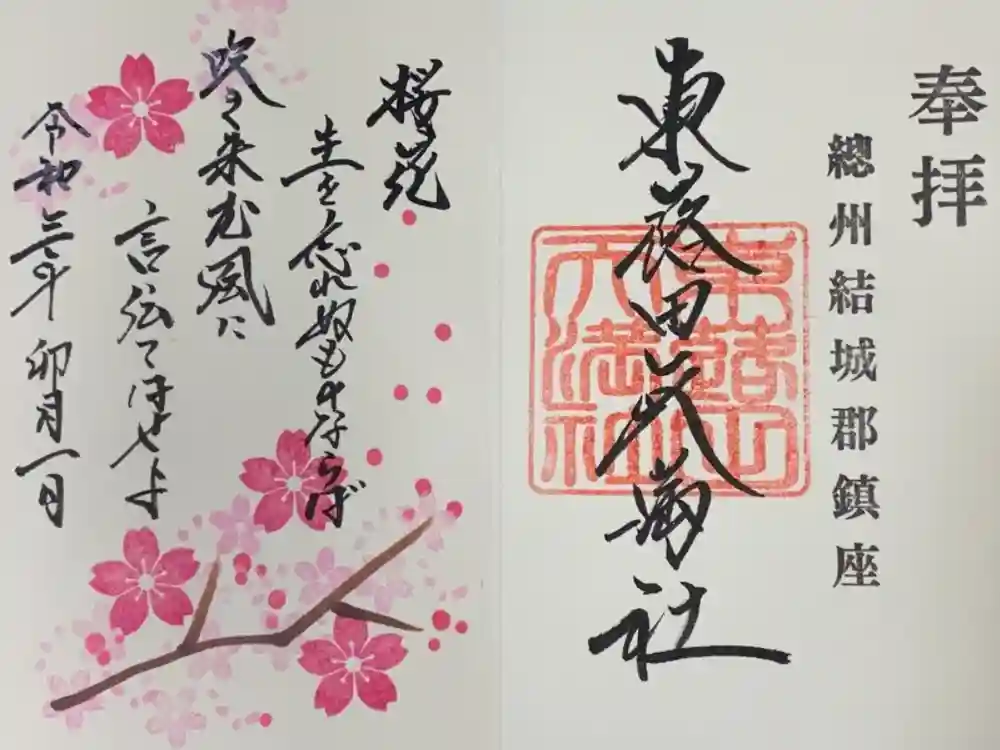 奉拝
總州結城郡鎮座
東蕗田天満社
東蕗田
天満社
桜花
主を忘れ奴ものならば
吹き来む風に
言伝てはせよ
令和三年 卯月一日